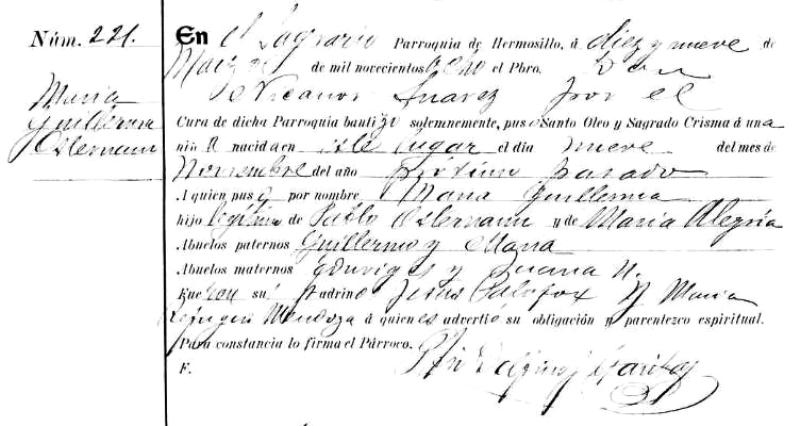 Núm. 221.
Maria
Guillerma
Ostermann
En el Sagrario Parroquia de Hermosillo, á diez y nueve de
Marzo de mil novecientos ocho el Pbro. Don
Nicanor Suarez por el
Cura de dicha Parroquia bautizo solemnemente, puso Santo Oleo y Sagrado Crisma á una
niña nacida en este lugar el día nueve del mes de
Noviembre del año próximo pasado
A quien puso por nombre Maria Guillerma
hija legítima de Pablo Ostermann y de Maria Alegría
Abuelos paternos Guillermo y Maria
Abuelos maternos Eduviges y Juana N.
Fueron su padrino Jesus Palafox y Maria
Refugio Mendoza á quienes advertió su obligación y parentezco espiritual.
Para constancia lo firma el Párroco.
F.